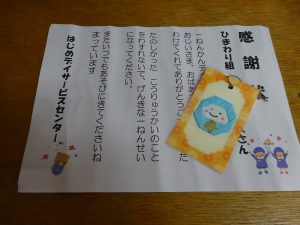 感謝
ひまわり組
さん
一ねんかんデ
おじいさま、おばあ
わけてくれてありがとう
た
たのしかった こうりゅうかいのこと
をわすれないで、げんきな一ねんせい
になってください。
またいつでもあそびにきてくださいね
まっています
はじめデイサービスセンター